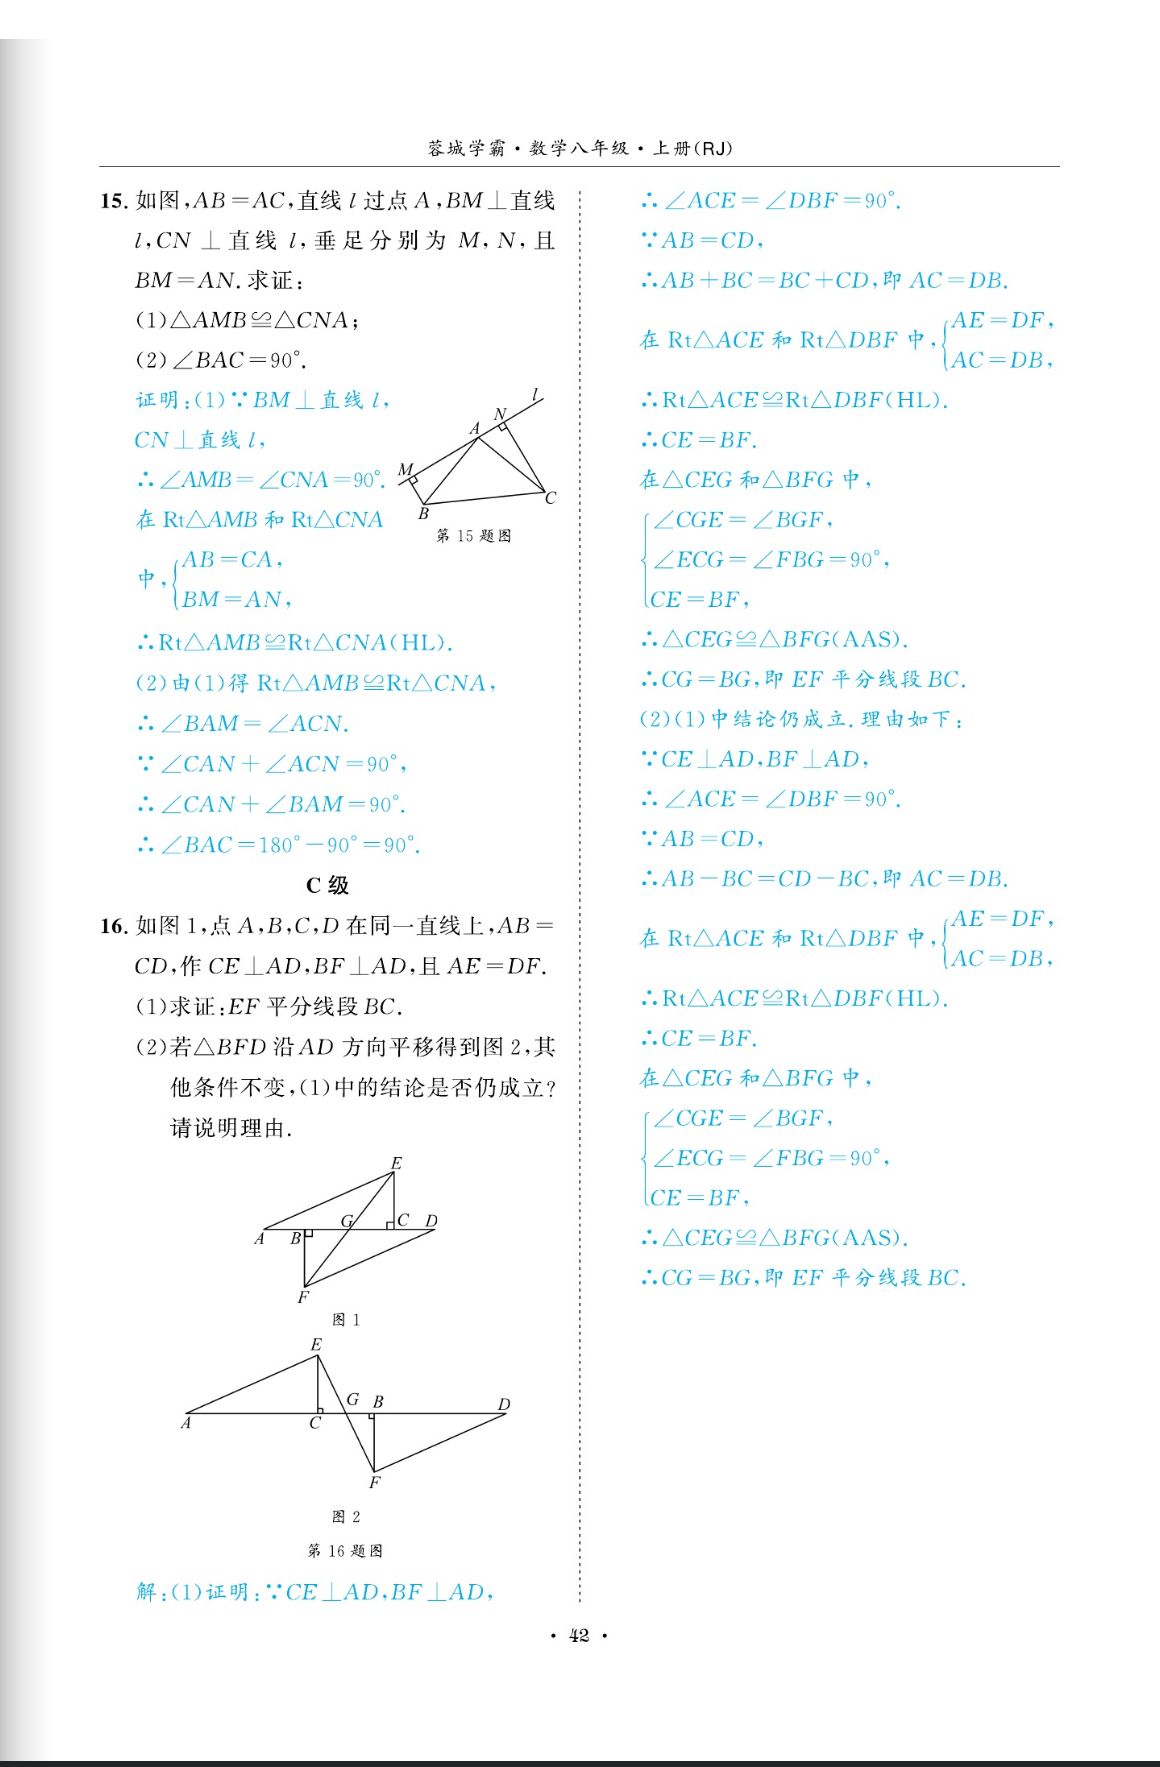 蓉城学霸·数学八年级·上册(RJ)
15. 如图,AB=AC,直线 l 过点 A,BM⊥直线
l,CN⊥直线 l,垂足分别为 M,N,且
BM=AN.求证:
(1)△AMB≌△CNA;
(2)∠BAC=90°.
证明:(1)∵BM⊥直线 l,
CN⊥直线 l,
∴∠AMB=∠CNA=90°.
在 Rt△AMB 和 Rt△CNA
中,{AB=CA,
BM=AN,
l
N
A
M
B
C
第 15 题图
∴Rt△AMB≌Rt△CNA(HL).
(2)由(1)得 Rt△AMB≌Rt△CNA,
∴∠BAM=∠ACN.
∵∠CAN+∠ACN=90°,
∴∠CAN+∠BAM=90°.
∴∠BAC=180°-90°=90°.
C 级
16. 如图 1,点 A,B,C,D 在同一直线上,AB=
CD,作 CE⊥AD,BF⊥AD,且 AE=DF.
(1)求证:EF 平分线段 BC.
(2)若△BFD 沿 AD 方向平移得到图 2,其
他条件不变,(1)中的结论是否仍成立?
请说明理由.
E
G C D
A B
F
图 1
E
G B D
A C
F
图 2
第 16 题图
解:(1)证明:∵CE⊥AD,BF⊥AD,
∴∠ACE=∠DBF=90°.
∵AB=CD,
∴AB+BC=BC+CD,即 AC=DB.
在 Rt△ACE 和 Rt△DBF 中,{AE=DF,
AC=DB,
∴Rt△ACE≌Rt△DBF(HL).
∴CE=BF.
在△CEG 和△BFG 中,
{∠CGE=∠BGF,
∠ECG=∠FBG=90°,
CE=BF,
∴△CEG≌△BFG(AAS).
∴CG=BG,即 EF 平分线段 BC.
(2)(1)中结论仍成立.理由如下:
∵CE⊥AD,BF⊥AD,
∴∠ACE=∠DBF=90°.
∵AB=CD,
∴AB-BC=CD-BC,即 AC=DB.
在 Rt△ACE 和 Rt△DBF 中,{AE=DF,
AC=DB,
∴Rt△ACE≌Rt△DBF(HL).
∴CE=BF.
在△CEG 和△BFG 中,
{∠CGE=∠BGF,
∠ECG=∠FBG=90°,
CE=BF,
∴△CEG≌△BFG(AAS).
∴CG=BG,即 EF 平分线段 BC.
· 42 ·